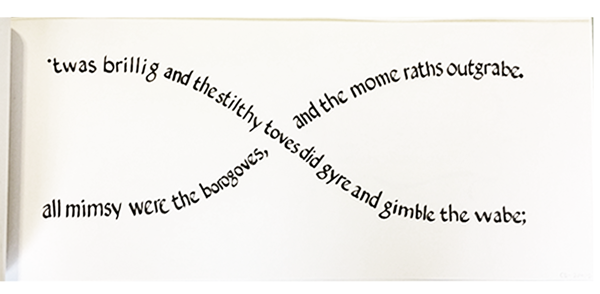 'twas brillig and the stilthy toves did gyre and gimble the wabe;
all mimsy were the borogoves, and the mome raths outgrabe.